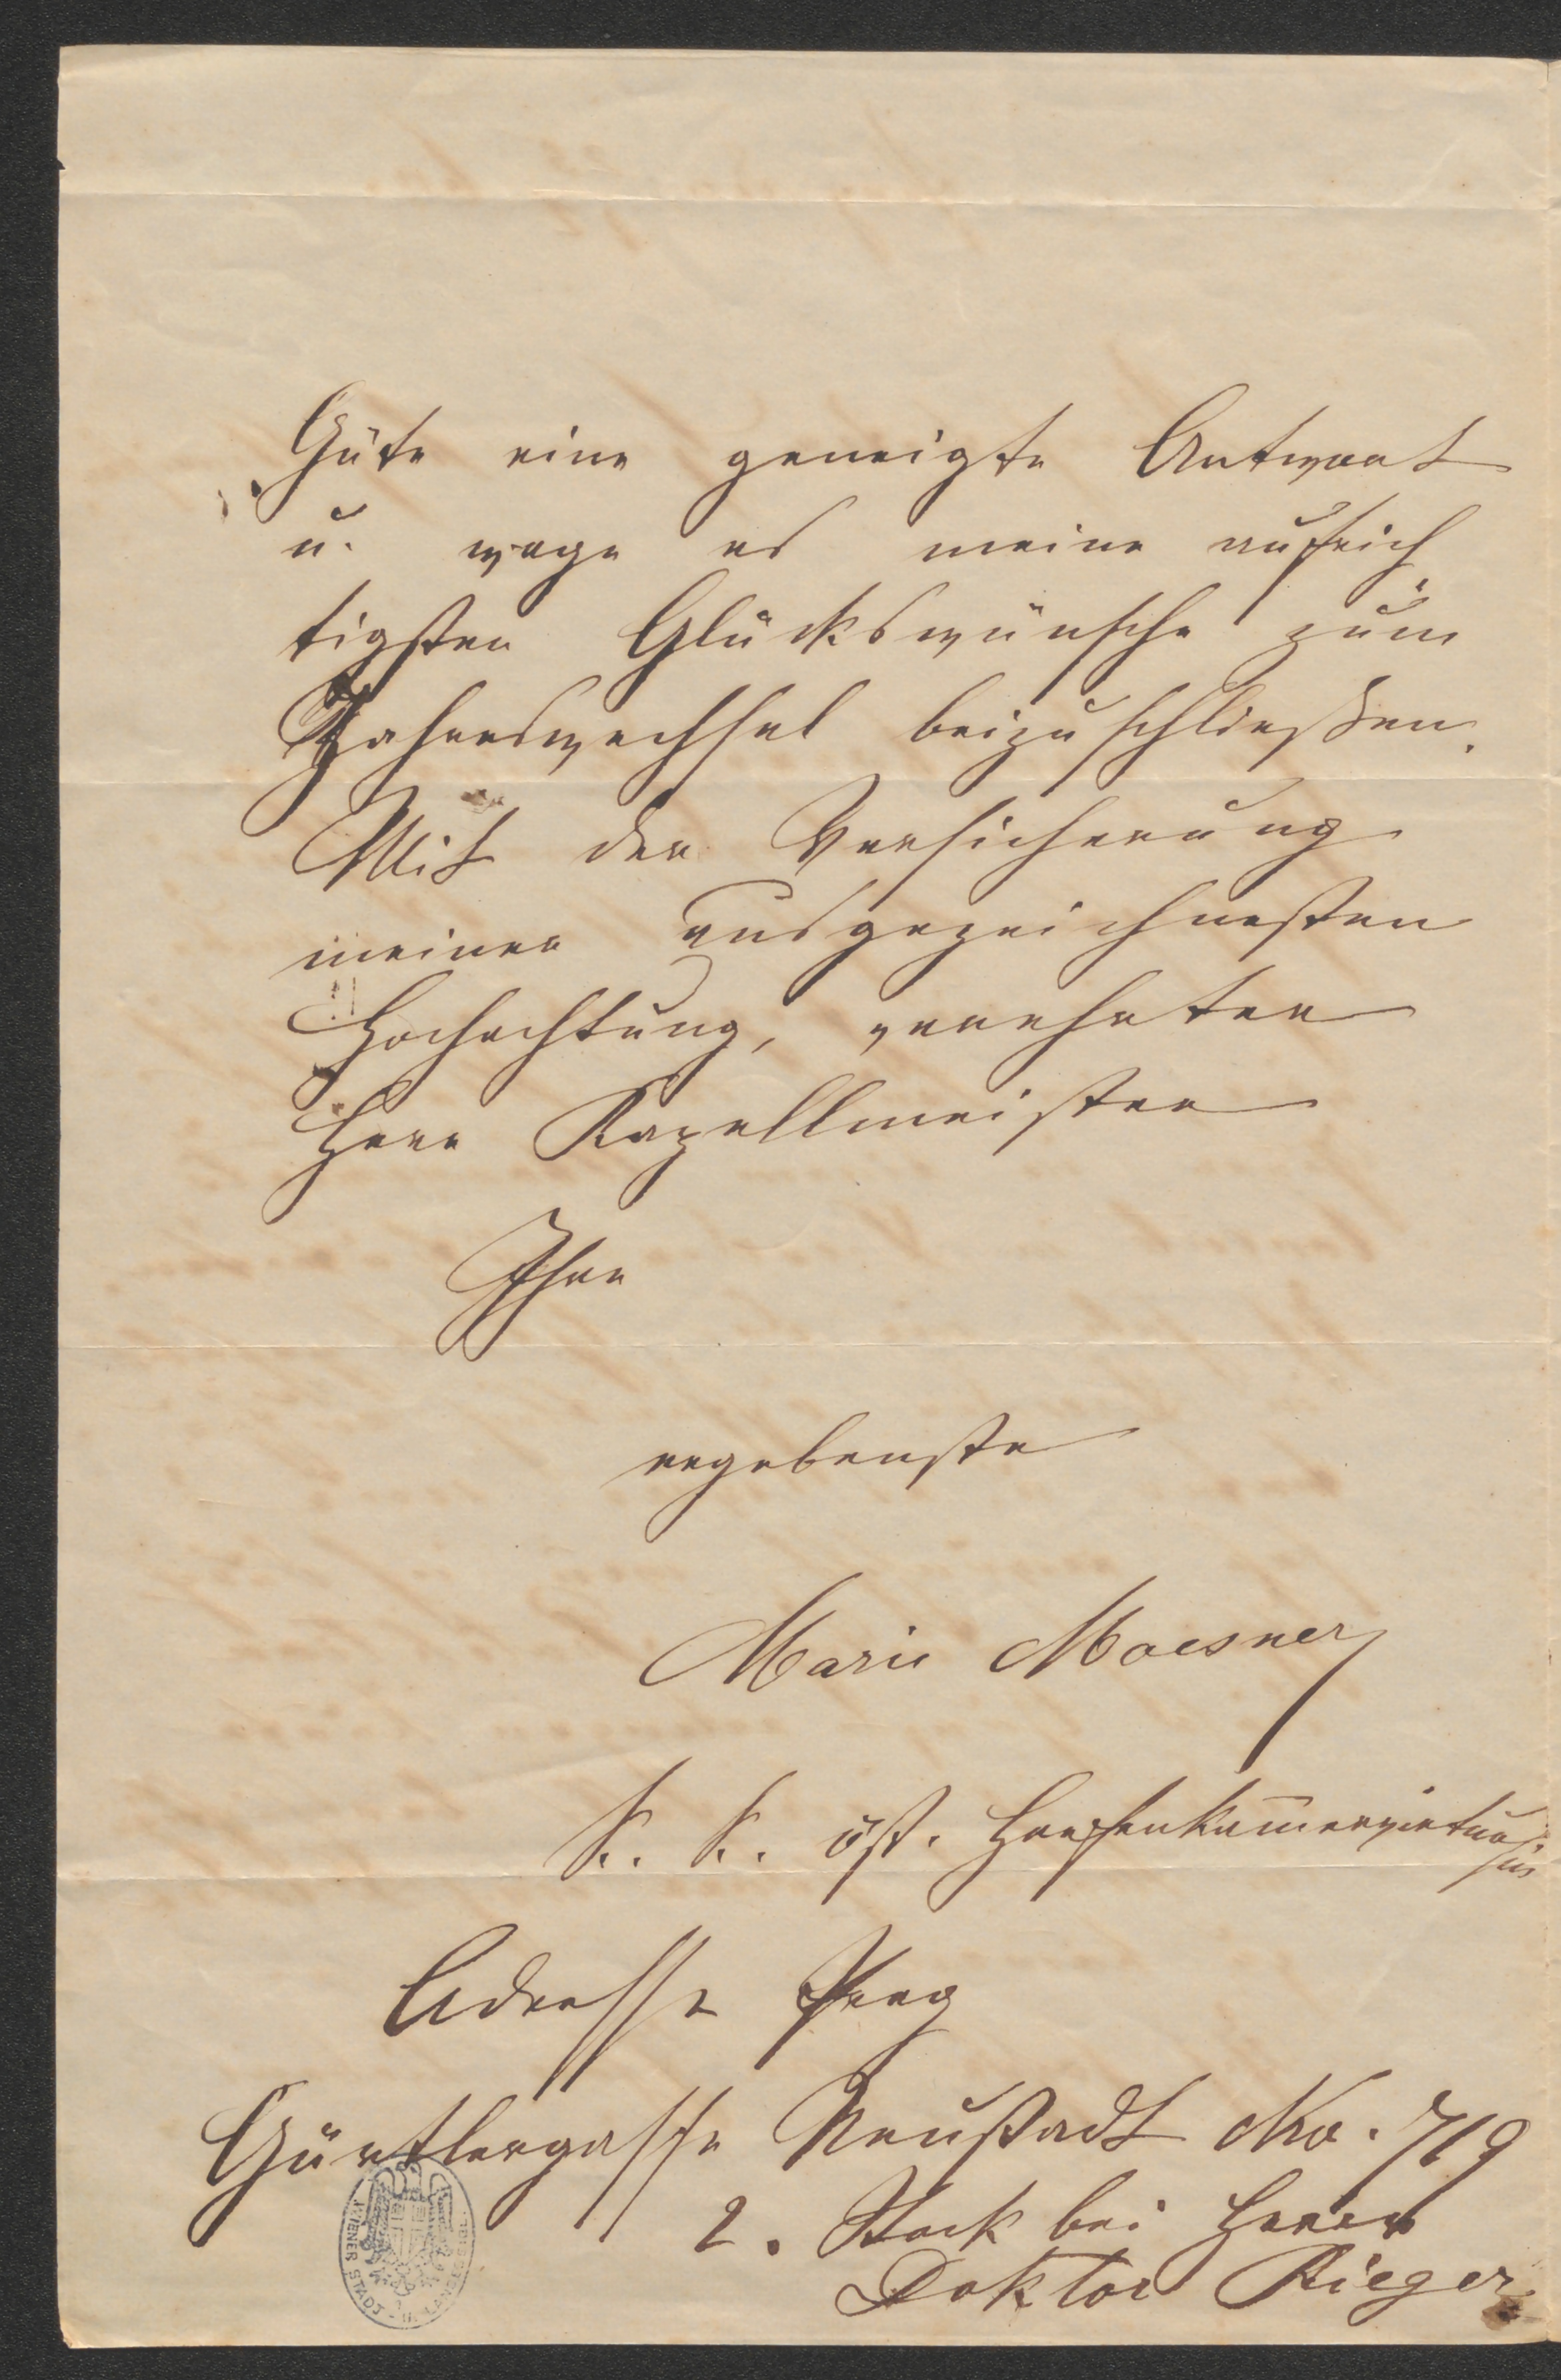 Güte eine geneigte Antwort
u. wage es meine aufrich
tigsten Glückswünsche zum
Jahreswechsel beizuschließen.
Mit der Versicherung
meiner ausgezeichnesten
Hochachtung, verehrter
Herr Kapellmeister
Ihre
ergebenste
Marie Moesner
k. k. öst. Harfenkam̅ervirtuo
sin
Adresse Prag
Gürtlergasse Neustadt No. 719
2. Stock bei Herrn
Doktor Rieger
WIENER STADT- U. LANDESBIBL.